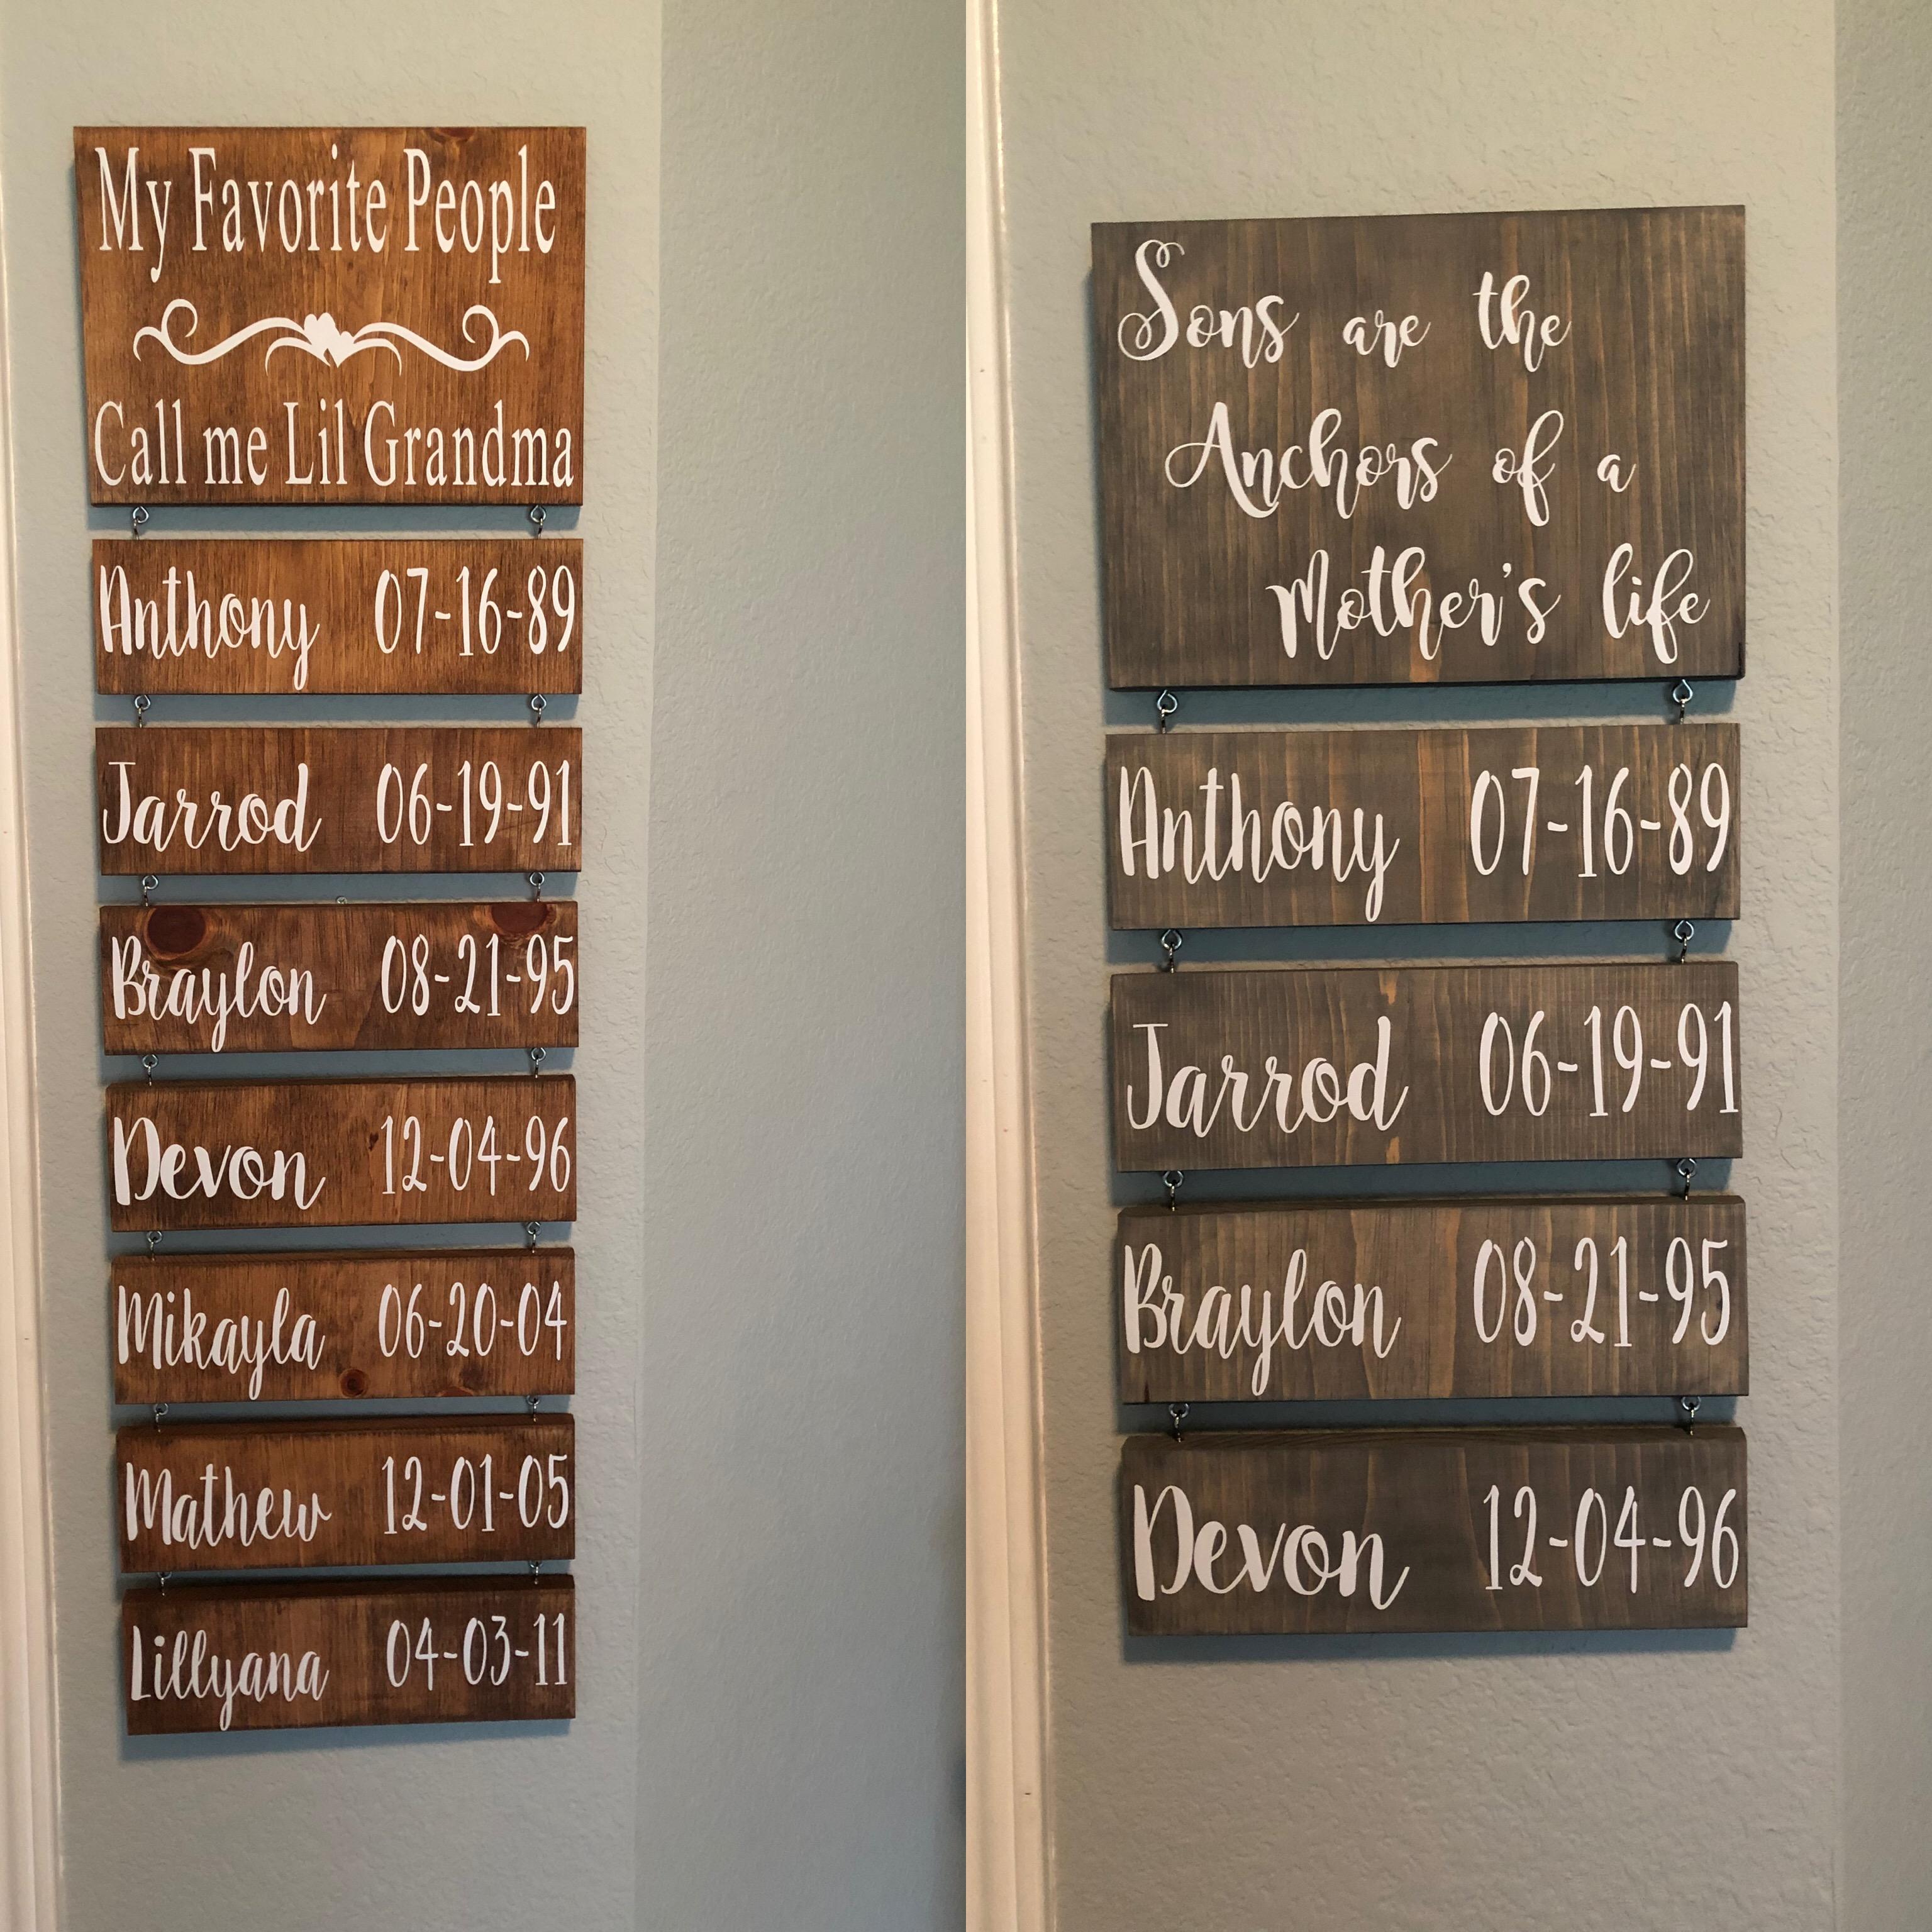 My Favorite People
Call me Lil Grandma
Anthony 07-16-89
Jarrod 06-19-91
Braylon 08-21-95
Devon 12-04-96
Mikayla 06-20-04
Mathew 12-01-05
Lillyana 04-03-11
Sons are the
Anchors of a
Mother's life
Anthony 07-16-89
Jarrod 06-19-91
Braylon 08-21-95
Devon 12-04-96